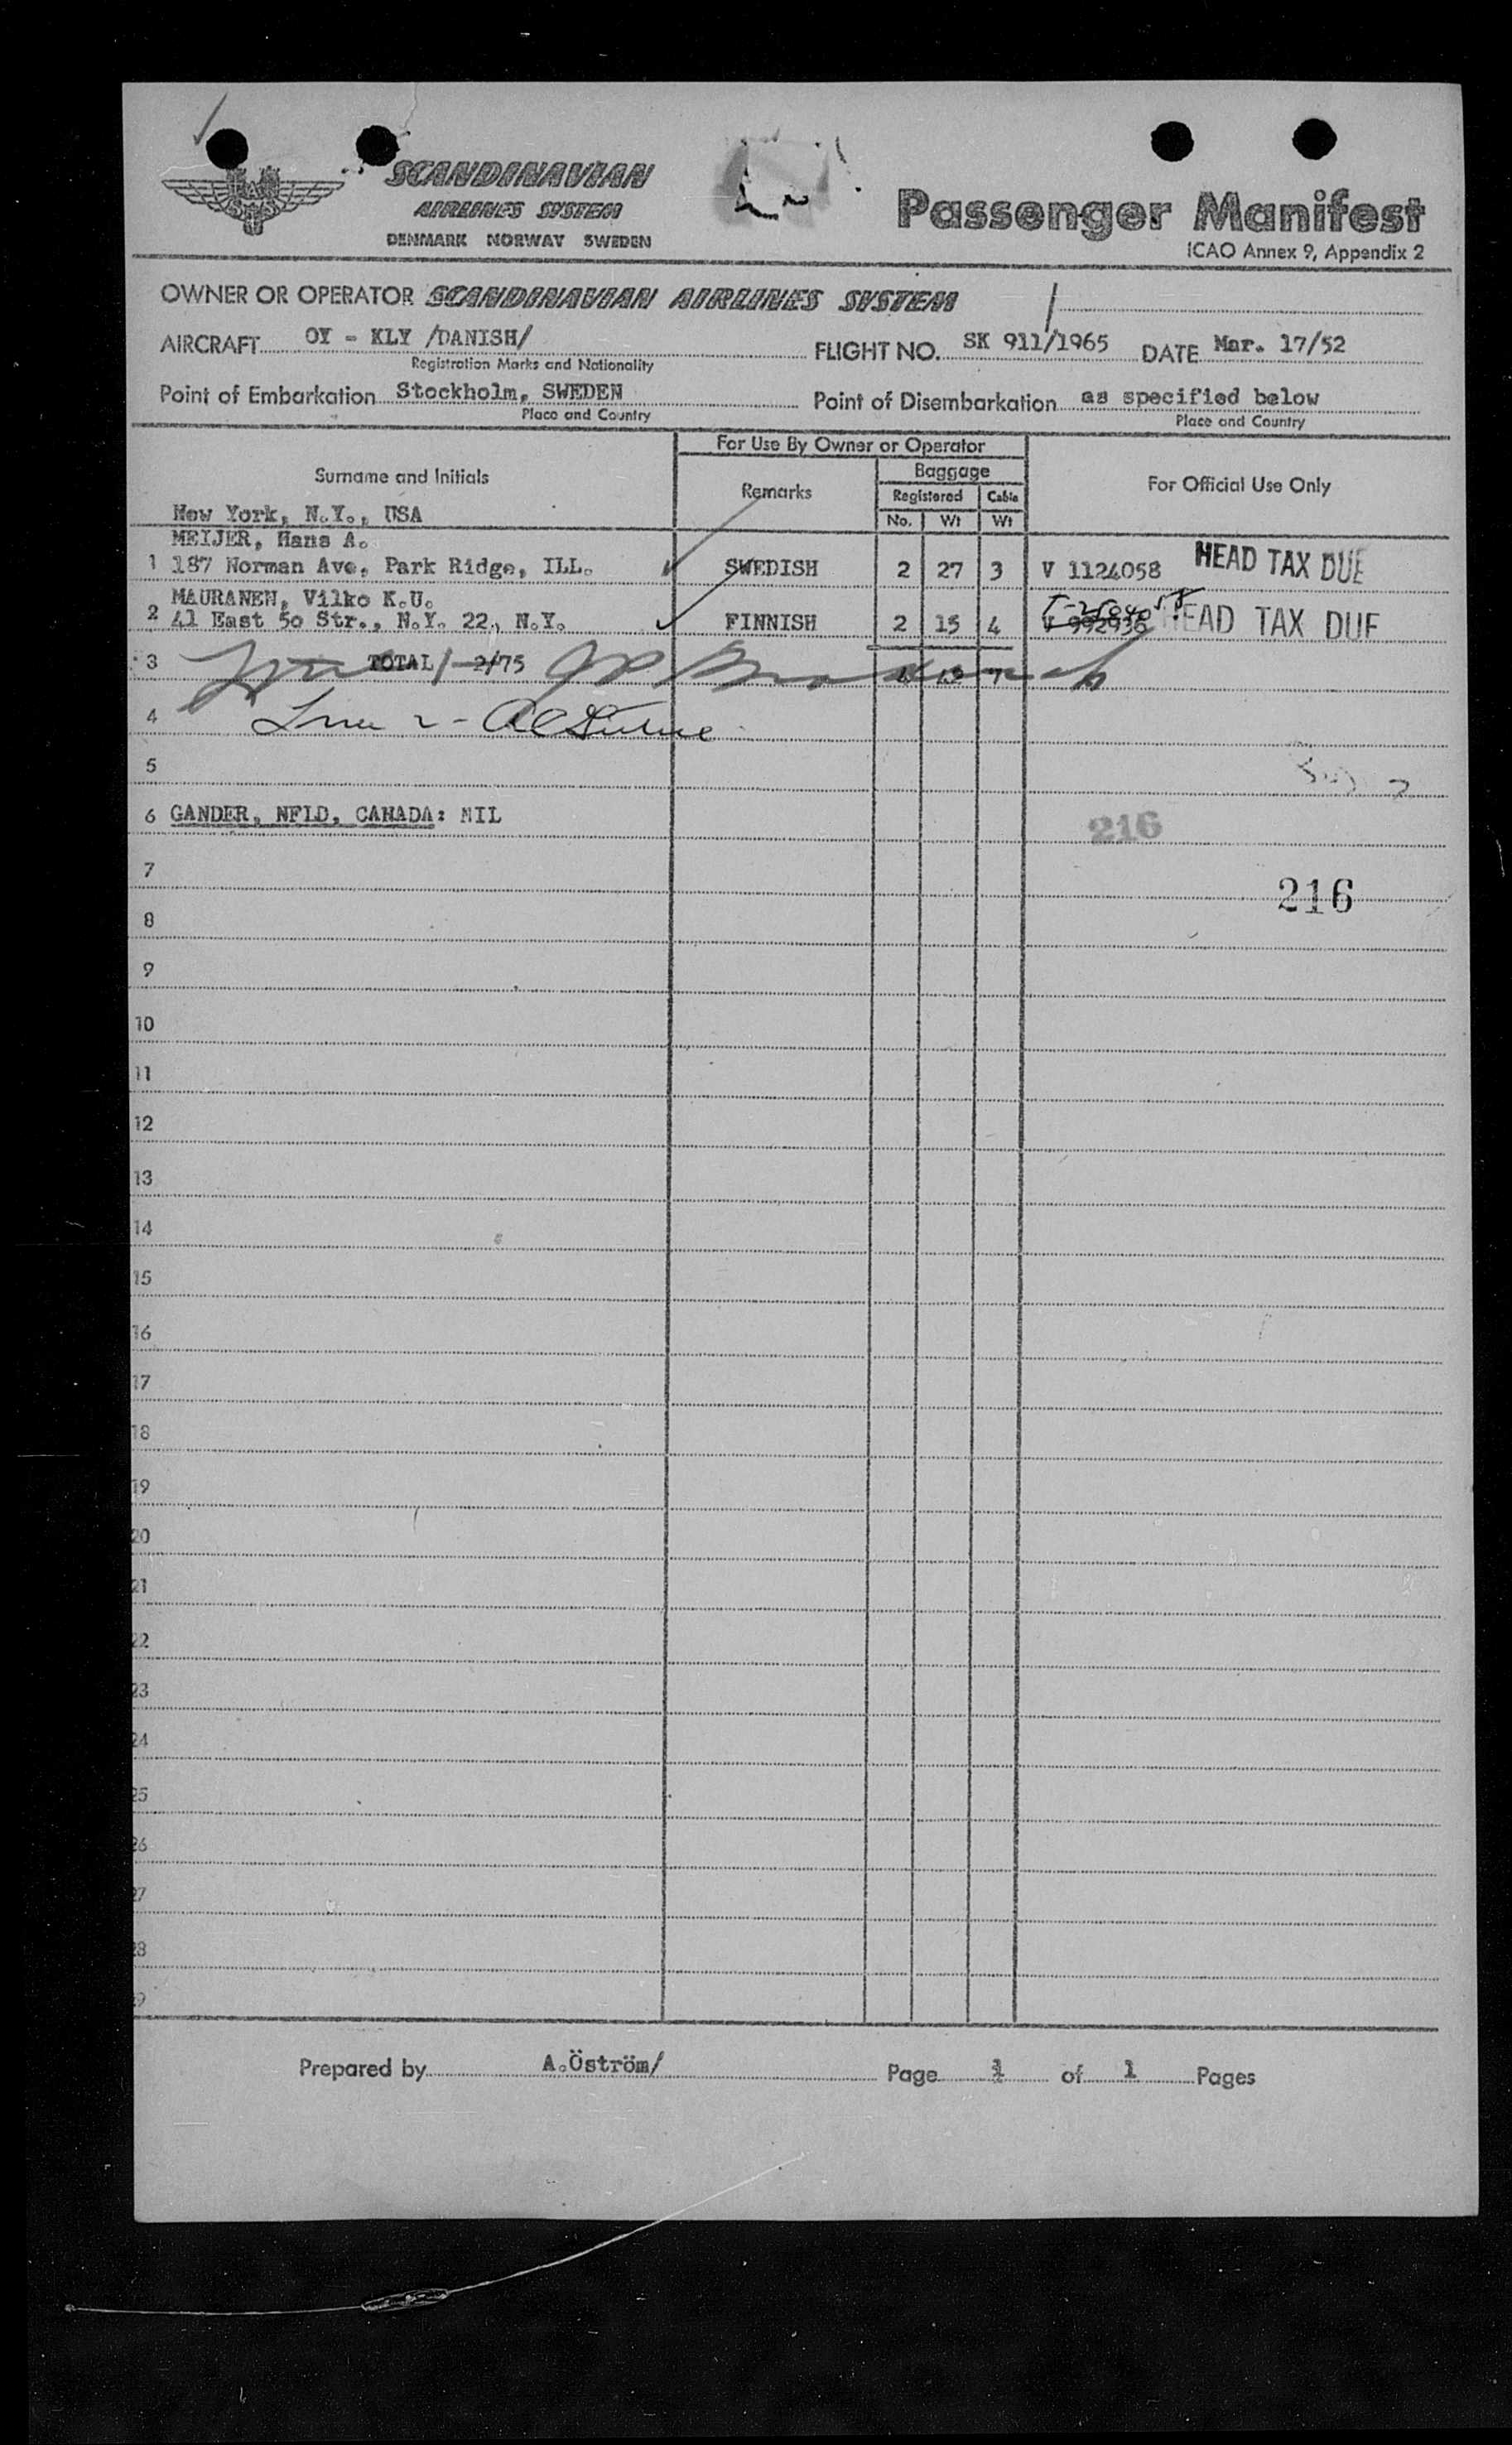 SCANDINAVIAN
AIRLINES SYSTEM
DENMARK NORWAY SWEDEN
Passenger Manifest
ICAO Annex 9, Appendix 2
OWNER OR OPERATOR SCANDINAVIAN AIRLINES SYSTEM
AIRCRAFT OY - KLY /DANISH/ FLIGHT NO. SK 911/1965 DATE Mar. 17/52
Registration Marks and Nationality
Point of Embarkation Stockholm, SWEDEN Point of Disembarkation as specified below
Place and Country Place and Country
For Use By Owner or Operator
Surname and Initials Remarks Baggage For Official Use Only
Registered Cabin
No. Wt Wt
New York, N.Y., USA
MEIJER, Hans A.
1 187 Norman Ave, Park Ridge, ILL. SWEDISH 2 27 3 V 1124058 HEAD TAX DUE
MAURANEN, Vilko K.U.
2 41 East 50 Str., N.Y. 22, N.Y. FINNISH 2 15 4 V 992936 HEAD TAX DUE
3 TOTAL 2/75
4
5
6 GANDER, NFLD, CANADA: NIL
216
7
216
8
9
10
11
12
13
14
15
16
17
18
19
20
21
22
23
24
25
26
27
28
29
Prepared by A.Öström/ Page 1 of 1 Pages